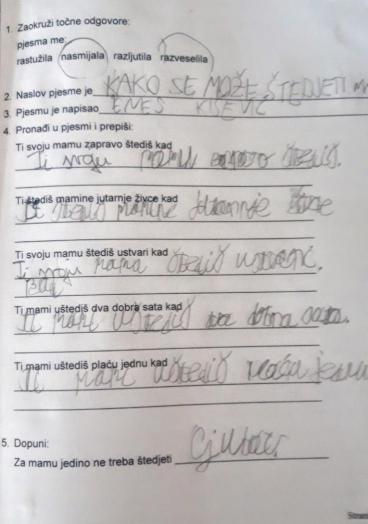 1. Zaokruži točne odgovore:
pjesma me:
rastužila nasmijala razljutila razveselila
2. Naslov pjesme je KAKO SE MOŽE ŠTEDJETI
3. Pjesmu je napisao ENES KIŠEVIĆ
4. Pronađi u pjesmi i prepiši:
Ti svoju mamu zapravo štediš kad
Ti svoju mamu zapravo štediš.
Ti štediš mamine jutarnje živce kad
Ti štediš mamine jutarnje živce
Ti svoju mamu štediš ustvari kad
Ti svoju mamu štediš ustvari.
Ti mami uštediš dva dobra sata kad
Ti mami uštediš dva dobra sata.
Ti mami uštediš plaću jednu kad
Ti mami uštediš plaću jednu
5. Dopuni:
Za mamu jedino ne treba štedjeti Ljubav